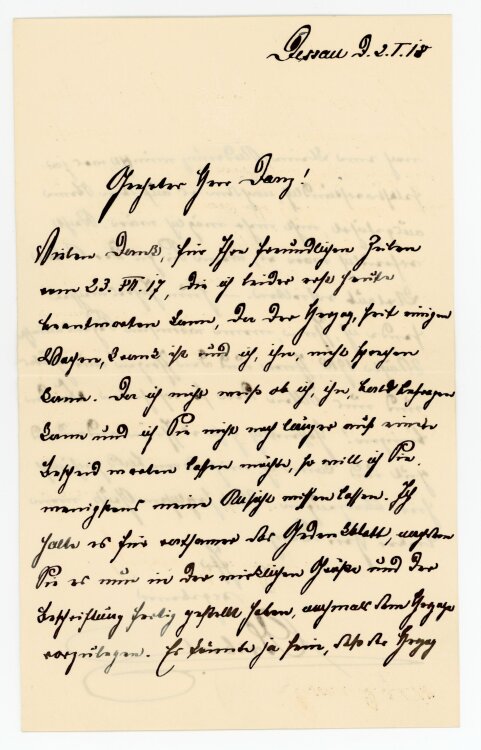 Dessau d. 2.I.18
Geehrter Herr Danz!
Vielen Dank, für Ihre freundlichen Zeilen
vom 23. XII. 17, die ich leider erst heute
beantworten kann, da der Herzog, seit einigen
Wochen, krank ist und ich, ihn, nicht sprechen
kann. Da ich nicht weiß ob ich, ihn, bald befragen
kann und ich Sie nicht noch länger auf einen
Bescheid warten lassen möchte, so will ich Sie,
wenigstens meine Ansicht wissen lassen. Ich
halte es für ratsamer das Gedenkblatt, nachdem
Sie es nun in der wirklichen Größe und der
Beschriftung fertig gestellt haben, nochmals dem Herzoge
vorzulegen. Es könnte ja sein, daß der Herzog